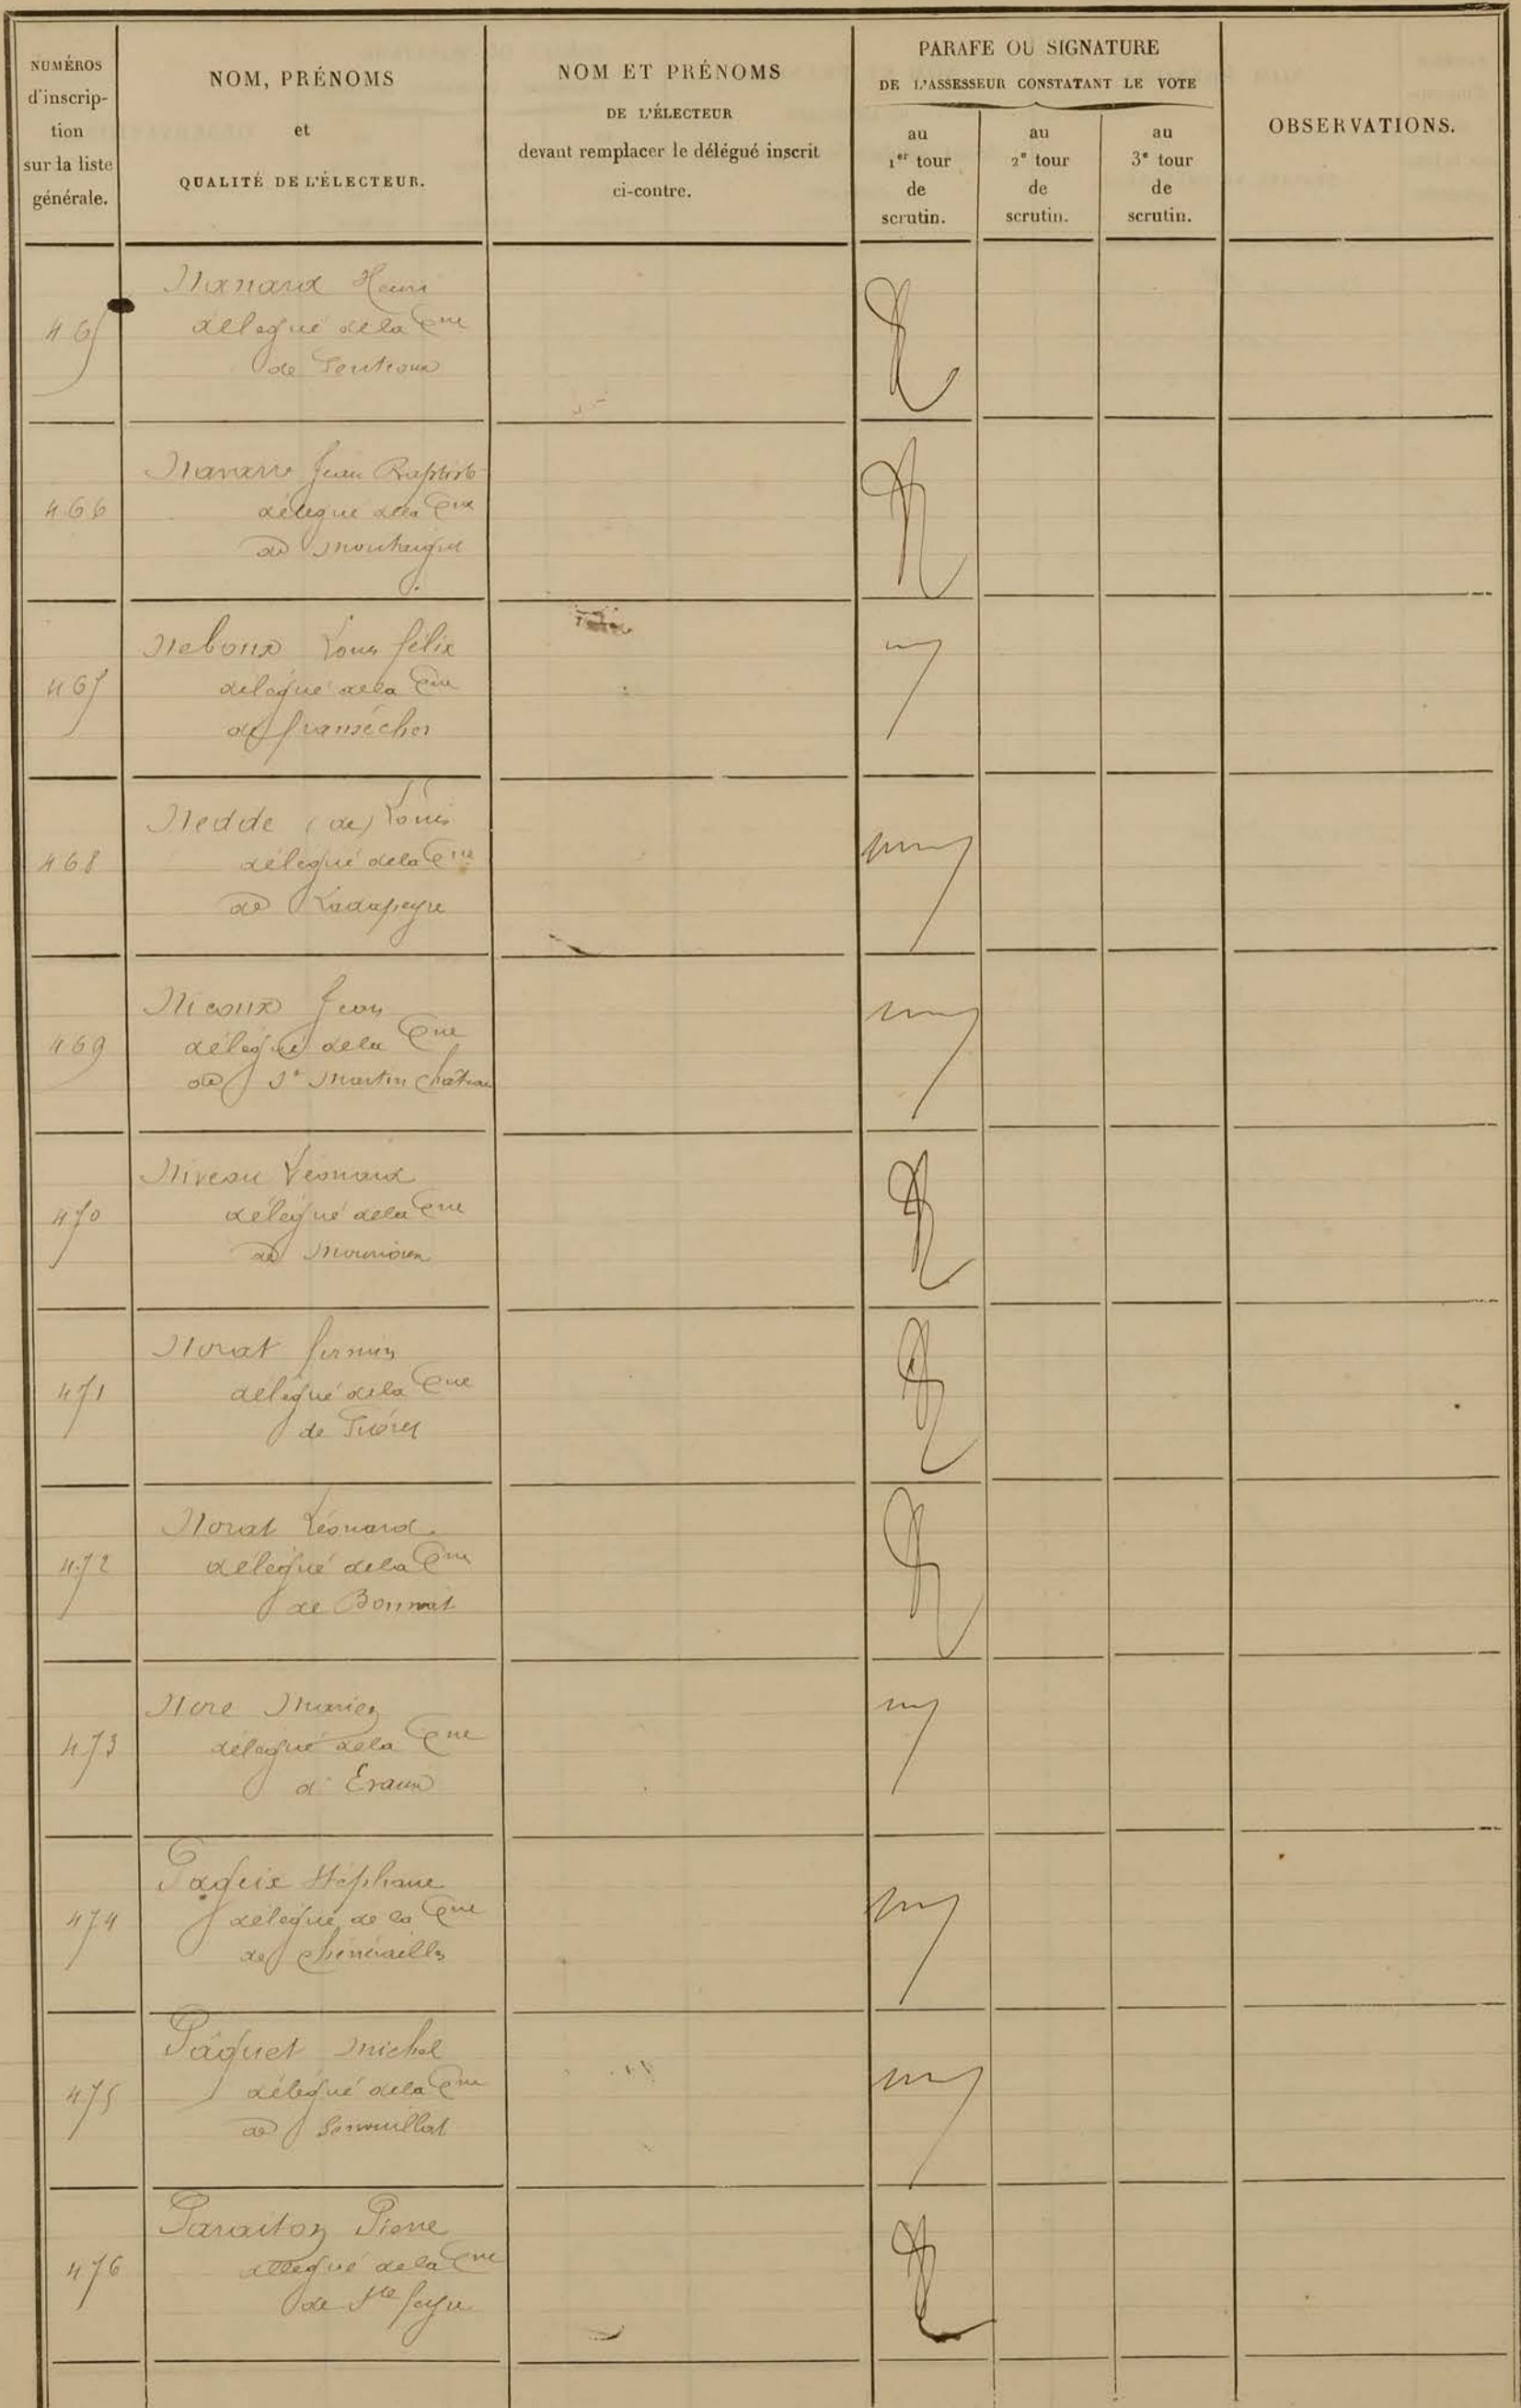 NUMÉROS
d'inscrip-
tion
sur la liste
générale.
NOM, PRÉNOMS
et
QUALITÉ DE L'ÉLECTEUR.
NOM ET PRÉNOMS
DE L'ÉLECTEUR
devant remplacer le délégué inscrit
ci-contre.
PARAFE OU SIGNATURE
DE L'ASSESSEUR CONSTATANT LE VOTE
au
1er tour
de
scrutin.
au
2e tour
de
scrutin.
au
3e tour
de
scrutin.
OBSERVATIONS.
465
Henri
délégué de la Cne
de Gentioux
466
Navarre Jean Baptiste
délégué de la Cne
de Montaigut
467
Neboux Louis félix
délégué de la Cne
de fransèches
468
Nedde (de) Louis
délégué de la Cne
de Ladapeyre
469
Nicoux Jean
délégué de la Cne
de St Martin Château
470
Niveau Léonard
délégué de la Cne
de Mourioux
471
Norat firmin
délégué de la Cne
de Guéret
472
Norat Léonard
délégué de la Cne
de Bonnat
473
Nore
délégué de la Cne
d'Evaux
474
Stéphane
délégué de la Cne
de Chénérailles
475
Pâquet Michel
délégué de la Cne
de Genouillat
476
Paraiton Pierre
délégué de la Cne
de Ste feyre